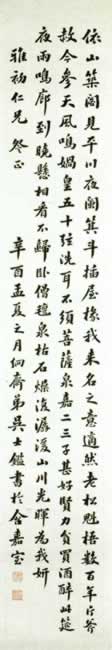 依山築閣見平川夜闌箕斗插屋椽我來名之意適然老松魁梧數百年斤斧
赦今參天風鳴媧皇五十弦洗耳不須菩薩泉嘉二三子甚好賢力貧買酒醉此筵
夜雨鳴廊到曉懸相看不歸臥僧氈泉枯石燥復潺湲山川光輝為我妍
雅初仁兄 正 辛酉孟夏之月絅齋弟吳士鑑書於含嘉室